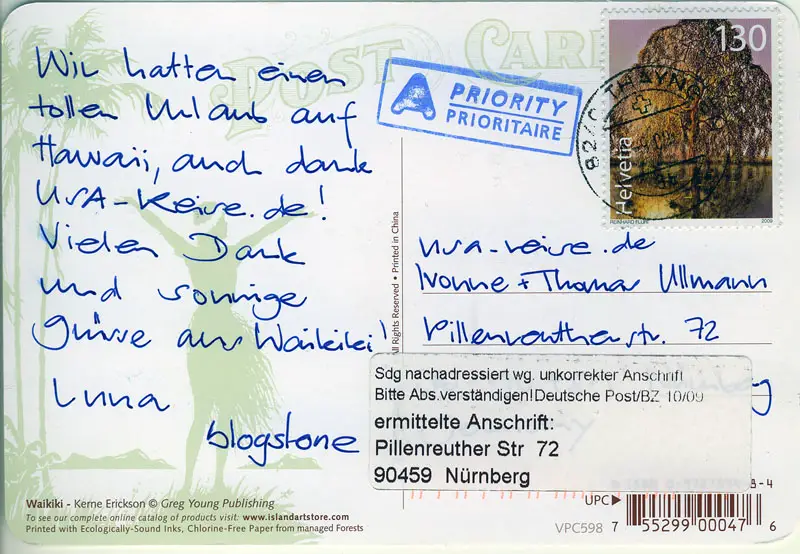 POST CARD
Wir hatten einen
tollen Urlaub auf
Hawaii, auch dank
USA-Reise.de!
Vielen Dank
und sonnige
Grüsse aus Waikiki!
Luna
blogstone
A PRIORITY
PRIORITAIRE
130
Helvetia
2009
8240 THAYNGEN
All Rights Reserved • Printed in China
usa-reise.de
Ivonne + Thomas Ullmann
Pillenreutherstr. 72
Sdg nachadressiert wg. unkorrekter Anschrift
Bitte Abs.verständigen!Deutsche Post/BZ 10/09
ermittelte Anschrift:
Pillenreuther Str 72
90459 Nürnberg
Waikiki - Kerne Erickson © Greg Young Publishing
To see our complete online catalog of products visit: www.islandartstore.com
Printed with Ecologically-Sound Inks, Chlorine-Free Paper from managed Forests
UPC
VPC598
7 55299 00047 6